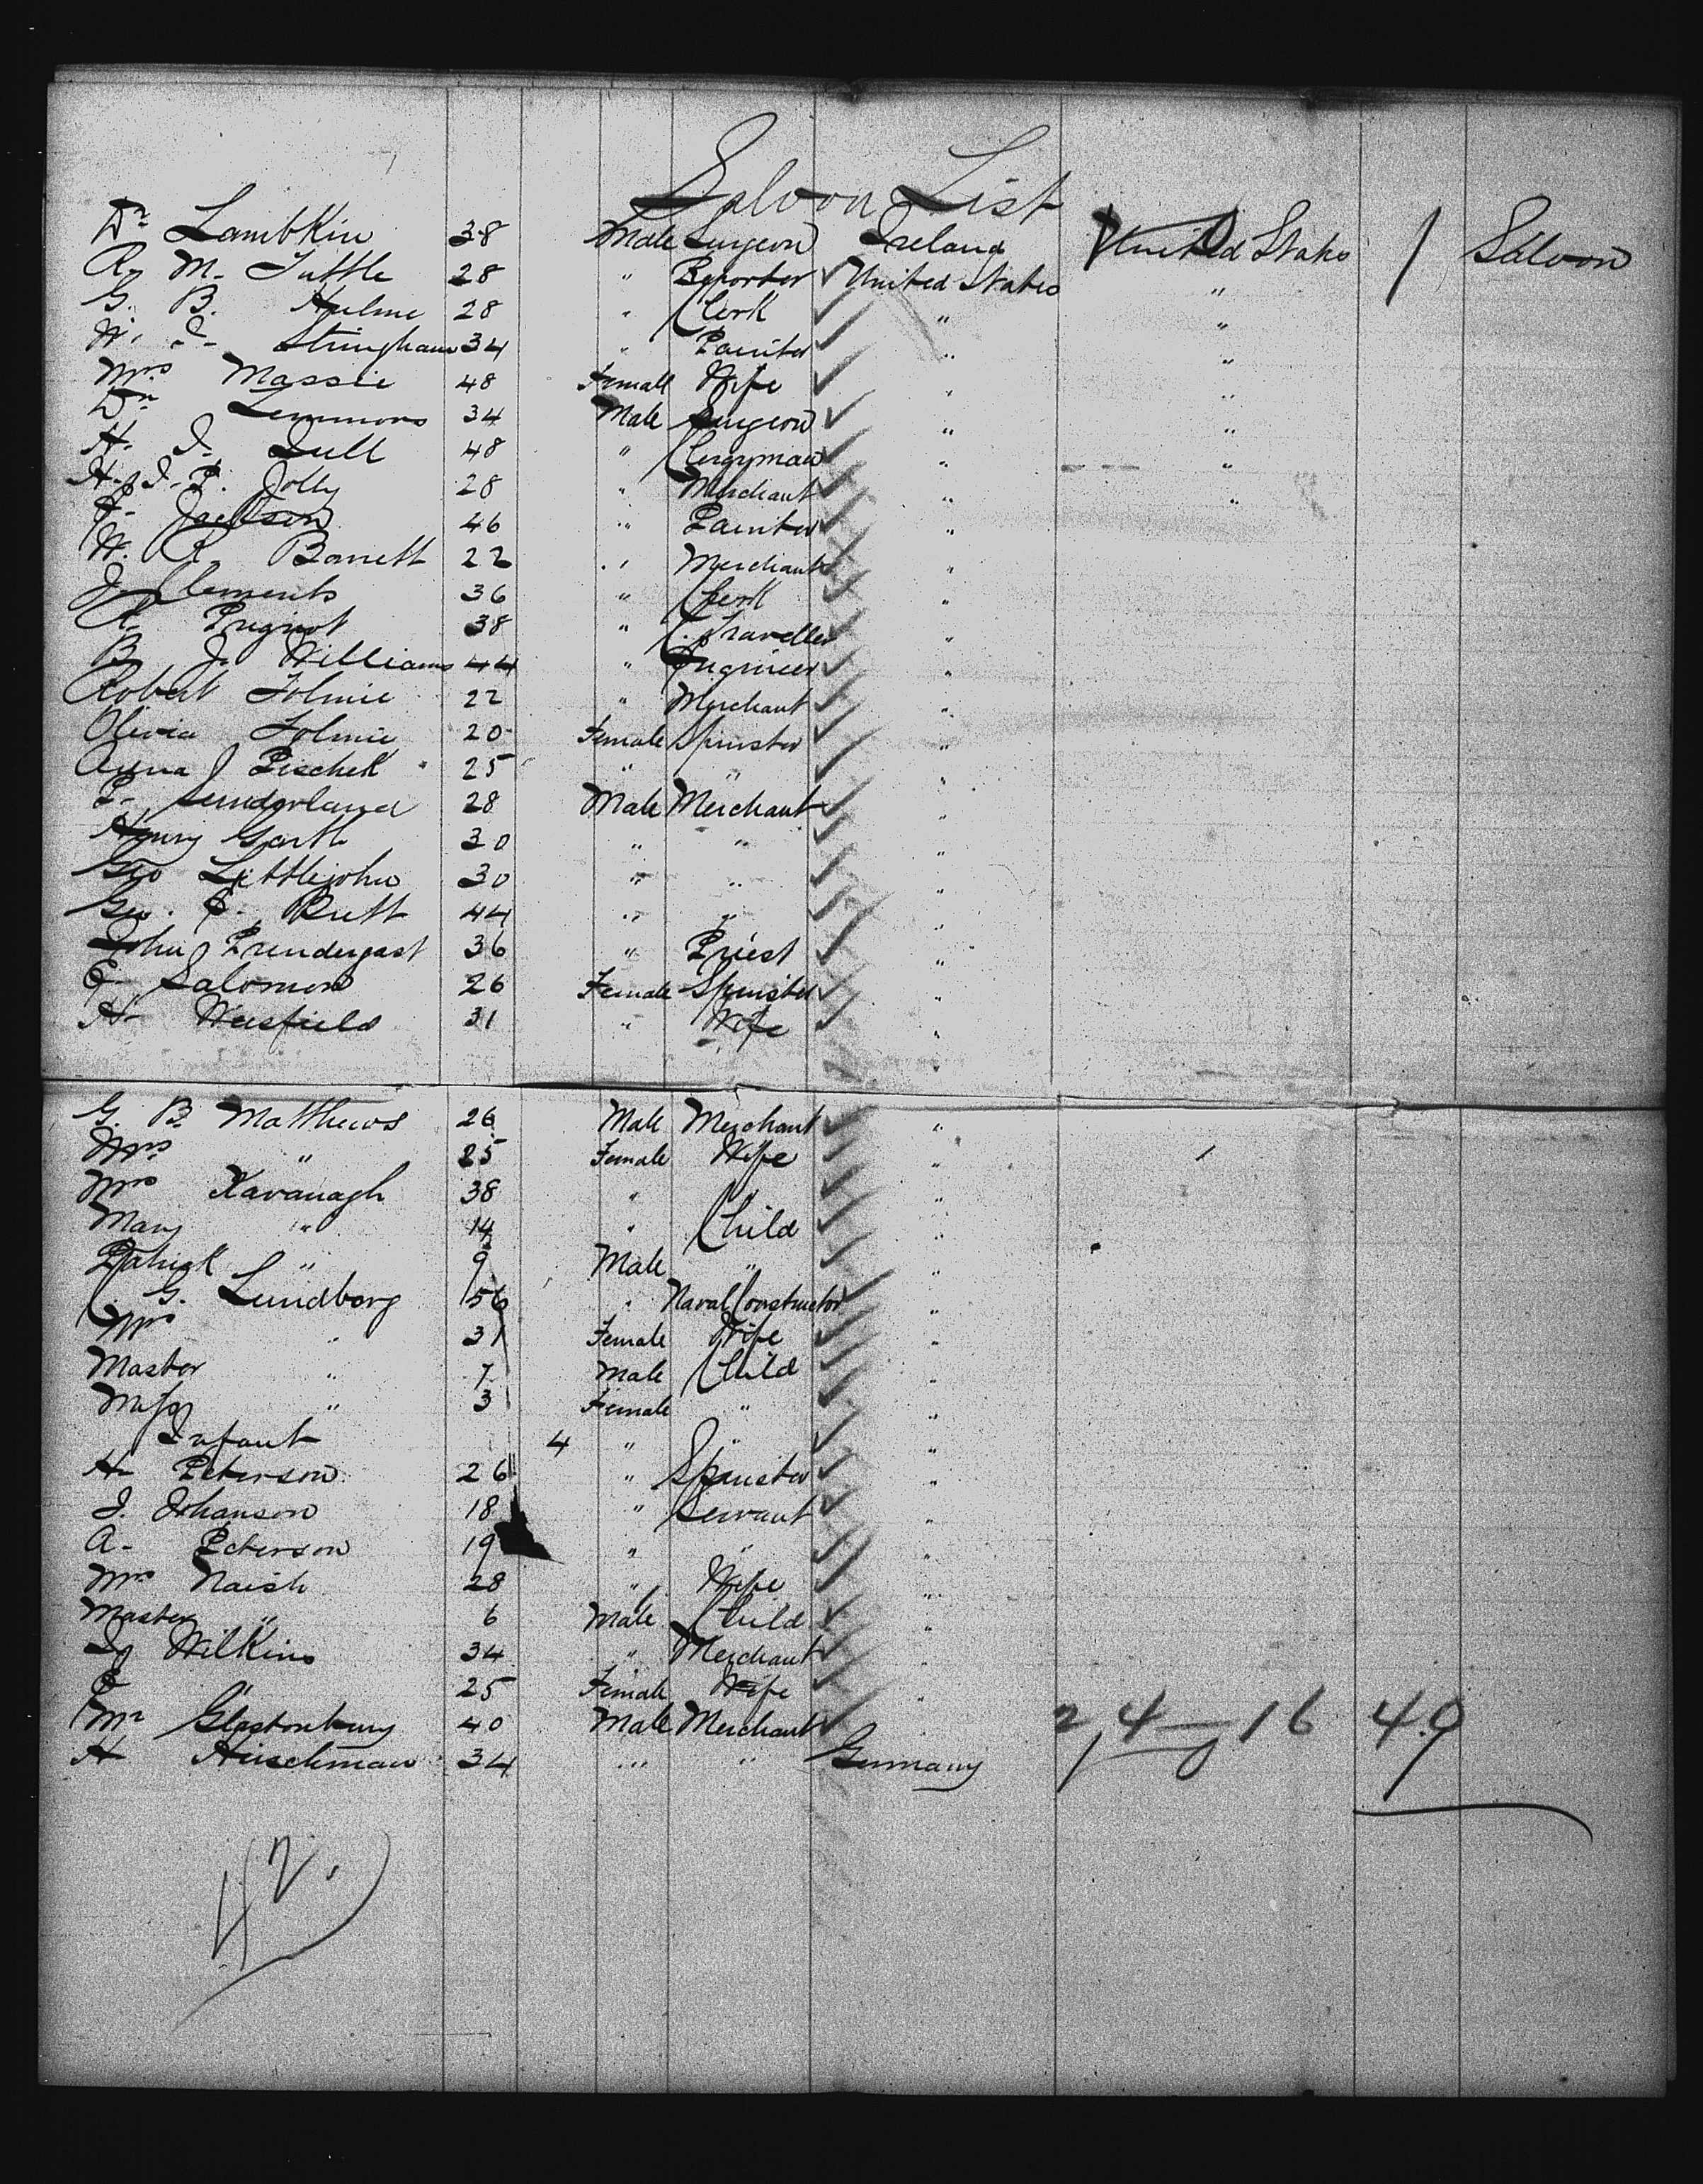 Saloon List
Dr Lambkin 38 Male Surgeon Ireland United States / Saloon
R. M. Tuttle 28 " Reporter United States "
G. B. Hulme 28 " Clerk " "
W. I. Stringham 34 " Painter " "
Mrs Massie 48 Female Wife " "
Dr Lemmons 34 Male Surgeon " "
H. I. Dull 48 " Clergyman " "
H. I. P. Jolly 28 " Merchant " "
F. Jackson 46 " Painter "
W. R. Barrett 22 " Merchant "
J. Clements 36 " Clerk "
A. Prignot 38 " C. Traveller "
B. J. Williams 44 " Engineer "
Robert Tolmie 22 " Merchant "
Olivia Tolmie 20 Female Spinster "
Anna Pischek 25 " " "
P. Sunderland 28 Male Merchant "
Henry Garth 30 " " "
Geo Littlejohn 30 " " "
Geo. E. Rutt 44 " " "
John Prendergast 36 " Priest "
E. Salomon 26 Female Spinster "
H. Weisfield 31 " Wife "
G. B. Matthews 26 Male Merchant "
Mrs " 25 Female Wife "
Mrs Kavanagh 38 " " "
Mary " 14 " Child "
Patrick " 9 Male " "
C. G. Lundborg 56 " Naval Constructor "
Mrs " 31 Female Wife "
Master " 7 Male Child "
Miss " 3 Female " "
Infant 4 " " "
H. Peterson 26 " Spinster "
I. Johanson 18 " Servant "
A. Peterson 19 " " "
Mrs Naish 28 " Wife "
Master " 6 Male Child "
I. Wilkins 34 " Merchant "
E " 25 Female Wife "
Mr Glastonbury 40 Male Merchant " 2,4 — 16 49
H Hirschman 34 " " Germany
42.